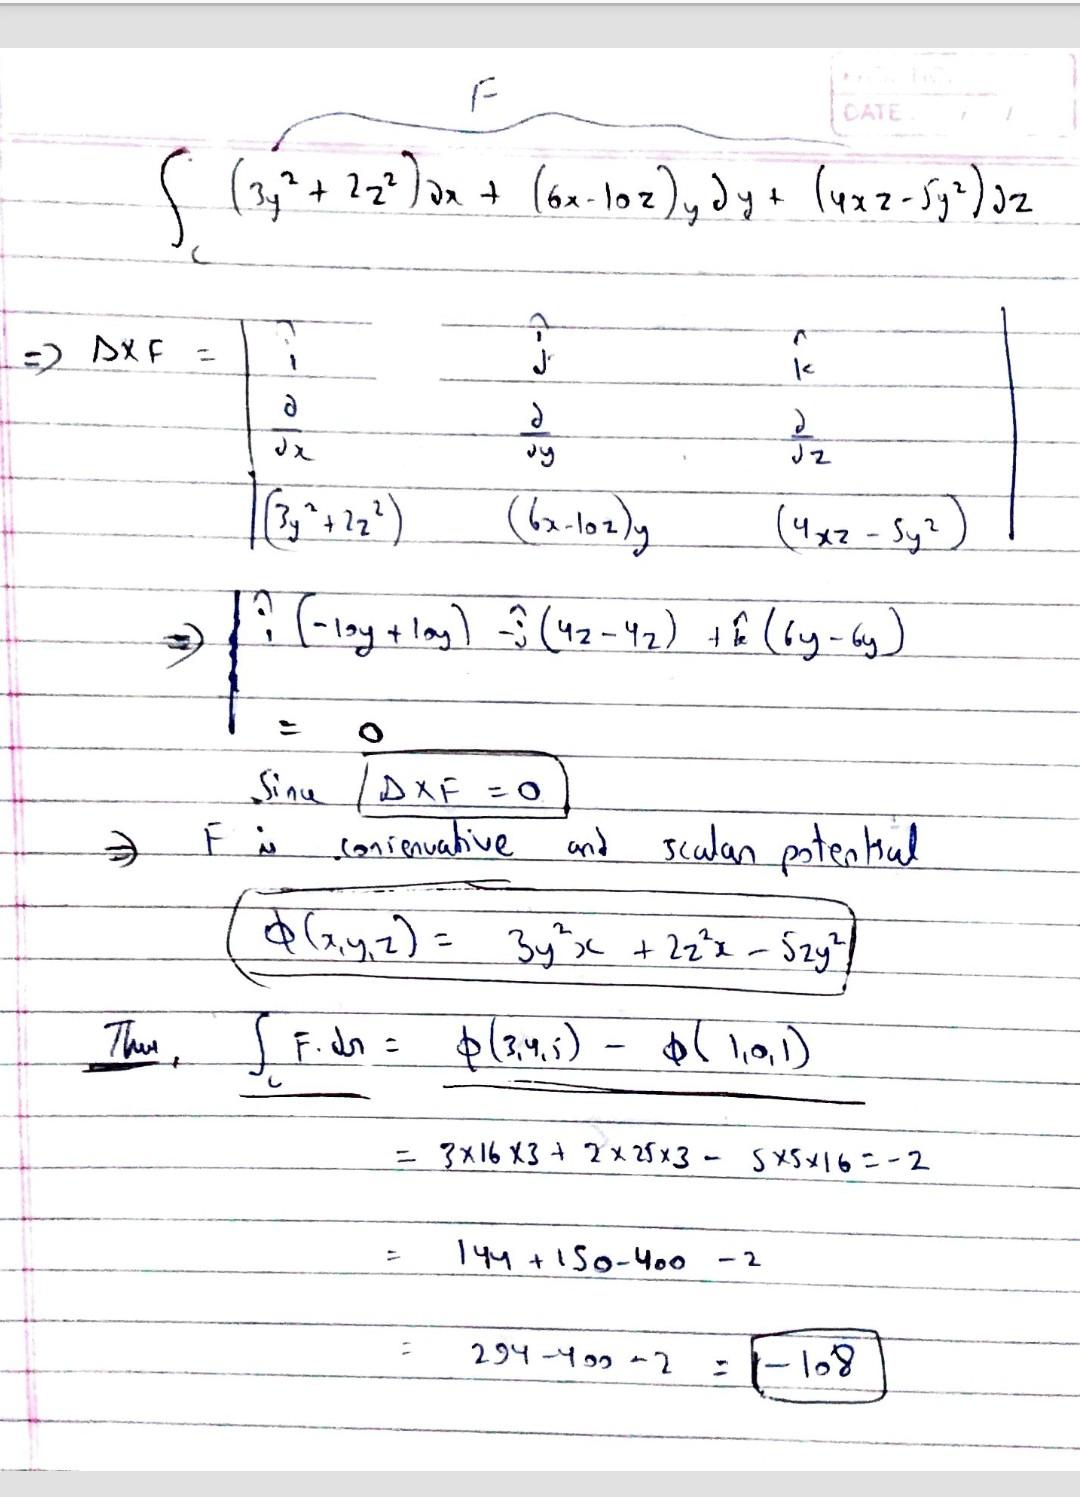 F
DATE / /
∫_c (3y² + 2z²)dx + (6x-10z)y dy + (4xz-5y²)dz
=> ΔXF = | î ĵ k̂
∂/∂x ∂/∂y ∂/∂z
(3y²+2z²) (6x-10z)y (4xz - 5y²) |
=> | î (-10y+10y) -ĵ (4z-4z) + k̂ (6y-6y)
= 0
Since ΔXF = 0
=> F is conservative and scalar potential
ϕ(x,y,z) = 3y²x + 2z²x - 5zy²
Thus, ∫_c F.dr = ϕ(3,4,5) - ϕ(1,0,1)
= 3x16x3 + 2x25x3 - 5x5x16 = -2
= 144 + 150-400 -2
= 294-400-2 = -108